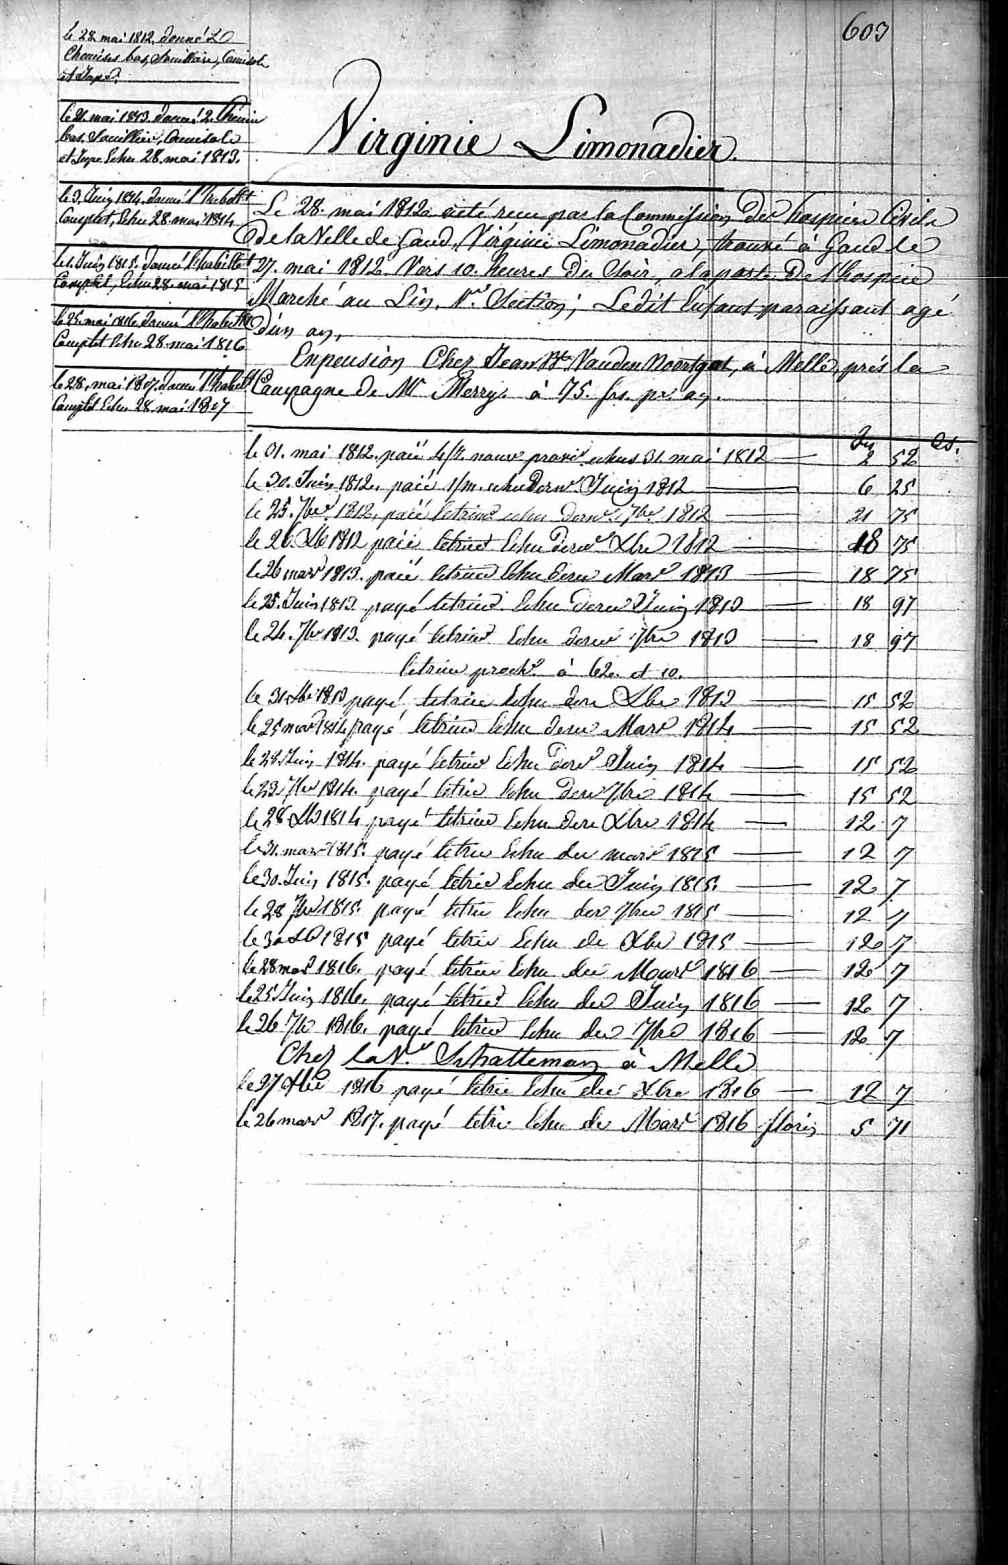 603
le 28 mai 1812. donné 2
Chemises bas, Souilliers, Camisole
et Jupe.
le 21. mai 1813. donné 2 Chemis
bas, Souillier, Camisole
et Jupe Echu 28. mai 1813.
le 3. Juin 1814. donné l'habillt
Complet, Echu 28. mai 1814
le 1. Juin 1815. donné l'habillt
Complet, Echu 28. mai 1815
le 25. mai 1816. donné l'habillt
Complet Echu 28. mai 1816
le 28. mai 1817. donné l'habillt
Complet Echu 28. mai 1817
Virginie Limonadier.
Le 28. mai 1812 a eté recu par la Commission des hospices Civils
de la Ville de Gand, Virginie Limonadier, trouvé à Gand le
27. mai 1812. Vers 10. heures du Soir, a la porte de l'hospice
Marché au Lin, 1re Section; Le dit Enfant paraissant agé
d'un an,
En pension Chez Jean Bte Vanden Noortgat, à Melle, près la
Campagne de Mr Merry. à 75. frs. pr. an.
frs Cs.
le 31. mai 1812. paié 4/7. nouv provis. echus 31. mai 1812 — 2 52
le 30. Juin 1812. paié 1/m. echu dernr Juin 1812 — 6 25
le 25. 7bre 1812. paié letrime echu dernr 7bre 1812 — 21 75
le 26 Xb 1812 paié letrime Echu dernr Xbre 1812 — 18 75
le 26 mars 1813. paié letrime Echu dern Mars 1813 — 18 75
le 25. Juin 1813. payé letrime Echu dern Juin 1813 — 18 97
le 24. 7bre 1813. payé letrime Echu dern 7bre 1813 — 18 97
letrime prochn à 62. et 10.
le 31 Xb 1813 payé letrime Echu dern Xbre 1813 — 15 52
le 25 mars 1814 payé letrime Echu dern Mars 1814 — 15 52
le 28 Juin 1814. payé letrime Echu dern Juin 1814 — 15 52
le 23. 7bre 1814. payé letrie Echu dern 7bre 1814 — 15 52
le 28 Xb 1814 payé letrime Echu dern Xbre 1814 — 12 7
le 31. mars 1815. payé letrie Echu der mars 1815 — 12 7
le 30. Juin 1815. payé letrie Echu der Juin 1815. — 12 7
le 28 7bre 1815. payé letrie Echu der 7bre 1815 — 12 7
le 30 Xb 1815 payé letrie Echu de Xbre 1815 — 12 7
le 28 mars 1816. payé letrie Echu der Mars 1816 — 12 7
le 25 Juin 1816. payé letrie Echu der Juin 1816 — 12 7
le 26 7b 1816. payé letrie Echu der 7bre 1816 — 12 7
Chez la Ve Schatteman à Melle
le 27 Xbre 1816 payé letrie Echu der Xbre 1816 — 12 7
le 26 mars 1817. payé letri Echu de Mars 1816 floris 5 71